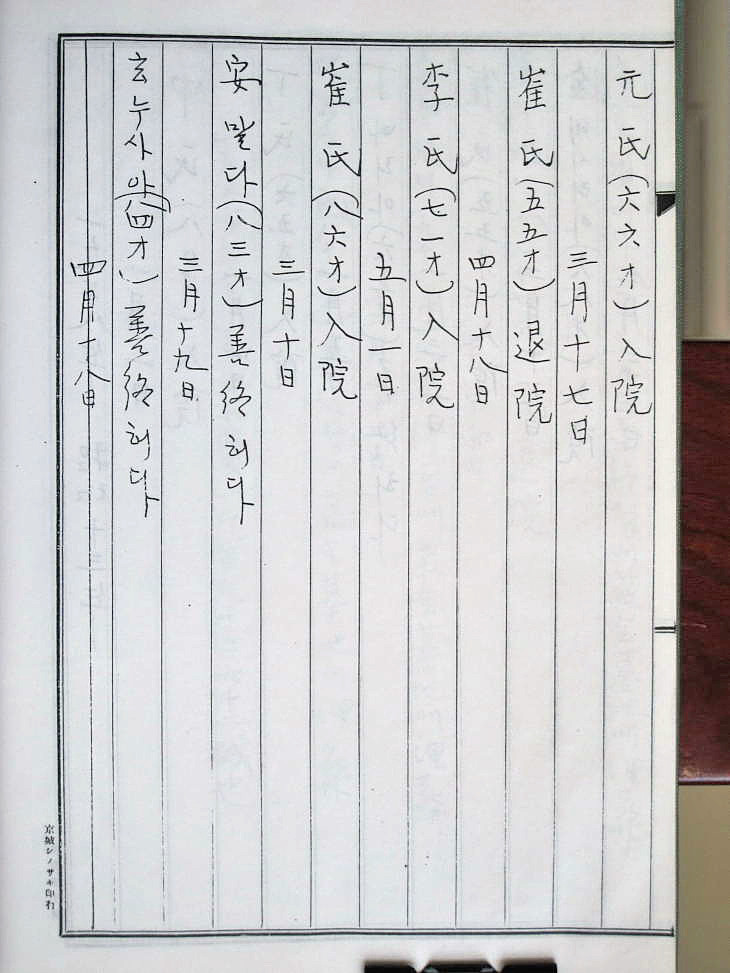 元氏(六六才)入院
三月十七日
崔氏(五五才)退院
四月十八日
李氏(七一才)入院
五月一日
崔氏(八六才)入院
三月十日
安말다(八三才)善終허다
三月十九日
玄누시아(四才)善終허다
四月十八日
京城シノサキ印行